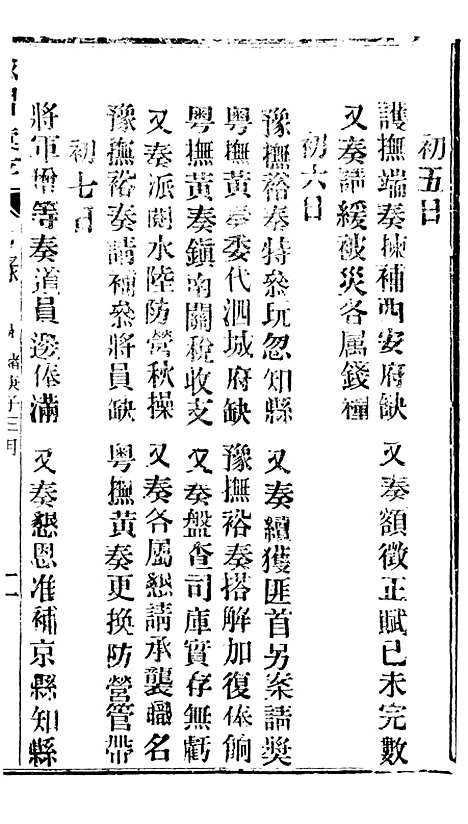 初五日
護撫端奏揀補西安府缺　又奏額徵正賦已未完數
又奏請緩被災各屬錢糧
初六日
豫撫裕奏特參玩忽知縣　又奏續獲匪首另案請獎
粵撫黃奏委代泗城府缺　豫撫裕奏搭解加復俸餉
粵撫黃奏鎮南關稅收支　又奏盤查司庫實存無虧
又奏派閱水陸防營秋操　又奏各屬懇請承襲職名
豫撫裕奏請補參將員缺　粵撫黃奏更換防營管帶
初七日
將軍增等奏道員邊俸滿　又奏懇恩准補京縣知縣
緒庚子三月